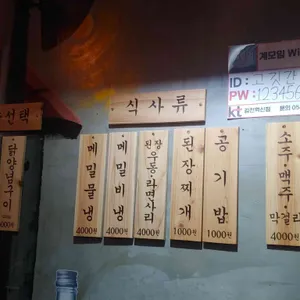 선택
식사류
계모임
ID :
PW : 123456
kt
닭양념구이
메밀물냉
4000원
메밀비냉
4000원
된장
우동·라면사리
4000원
된장찌개
1000원
공기밥
1000원
소주·맥주
막걸리
4000원